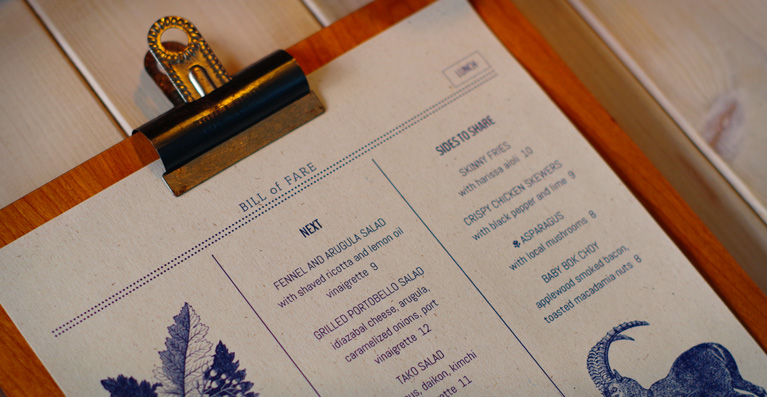 LUNCH
BILL of FARE
NEXT
FENNEL AND ARUGULA SALAD
with shaved ricotta and lemon oil
vinaigrette 9
GRILLED PORTOBELLO SALAD
idiazabal cheese, arugula,
caramelized onions, port
vinaigrette 12
TAKO SALAD
daikon, kimchi
11
SIDES TO SHARE
SKINNY FRIES
with harissa aioli 10
CRISPY CHICKEN SKEWERS
with black pepper and lime 9
ASPARAGUS
with local mushrooms 8
BABY BOK CHOY
applewood smoked bacon,
toasted macadamia nuts 8